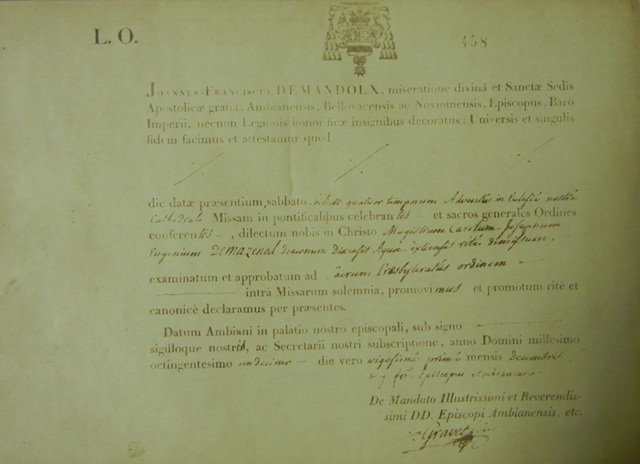 L. O.
448
JOANNES-FRANCISCUS DEMANDOLX, miseratione divinâ et Sanctæ Sedis
Apostolicæ gratiâ, Ambianensis, Bellovacensis ac Noviomensis, Episcopus, Baro
Imperii, necnon Legionis honorificæ insignibus decoratus; Universis et singulis
fidem facimus et attestamur quod
die datæ præsentium, sabbato quatuor temporum Adventus in Ecclesiâ nostrâ
Cathedrale Missam in pontificalibus celebrantes et sacros generales Ordines
conferentes, dilectum nobis in Christo Magistrum Carolum Josephum
Eugenium Demazenod diaconum rite dimissum,
examinatum et approbatum ad sacrum Presbyteratus ordinem
intrà Missarum solemnia, promovimus et promotum ritè et
canonicè declaramus per præsentes.
Datum Ambiani in palatio nostro episcopali, sub signo
sigilloque nostris, ac Secretarii nostri subscriptione, anno Domini millesimo
octingentesimo undecimo die vero vigesimâ primâ mensis decembris
Episcopus Ambianensis
De Mandato Illustrissimi et Reverendis-
simi DD. Episcopi Ambianensis, etc.
Gravet